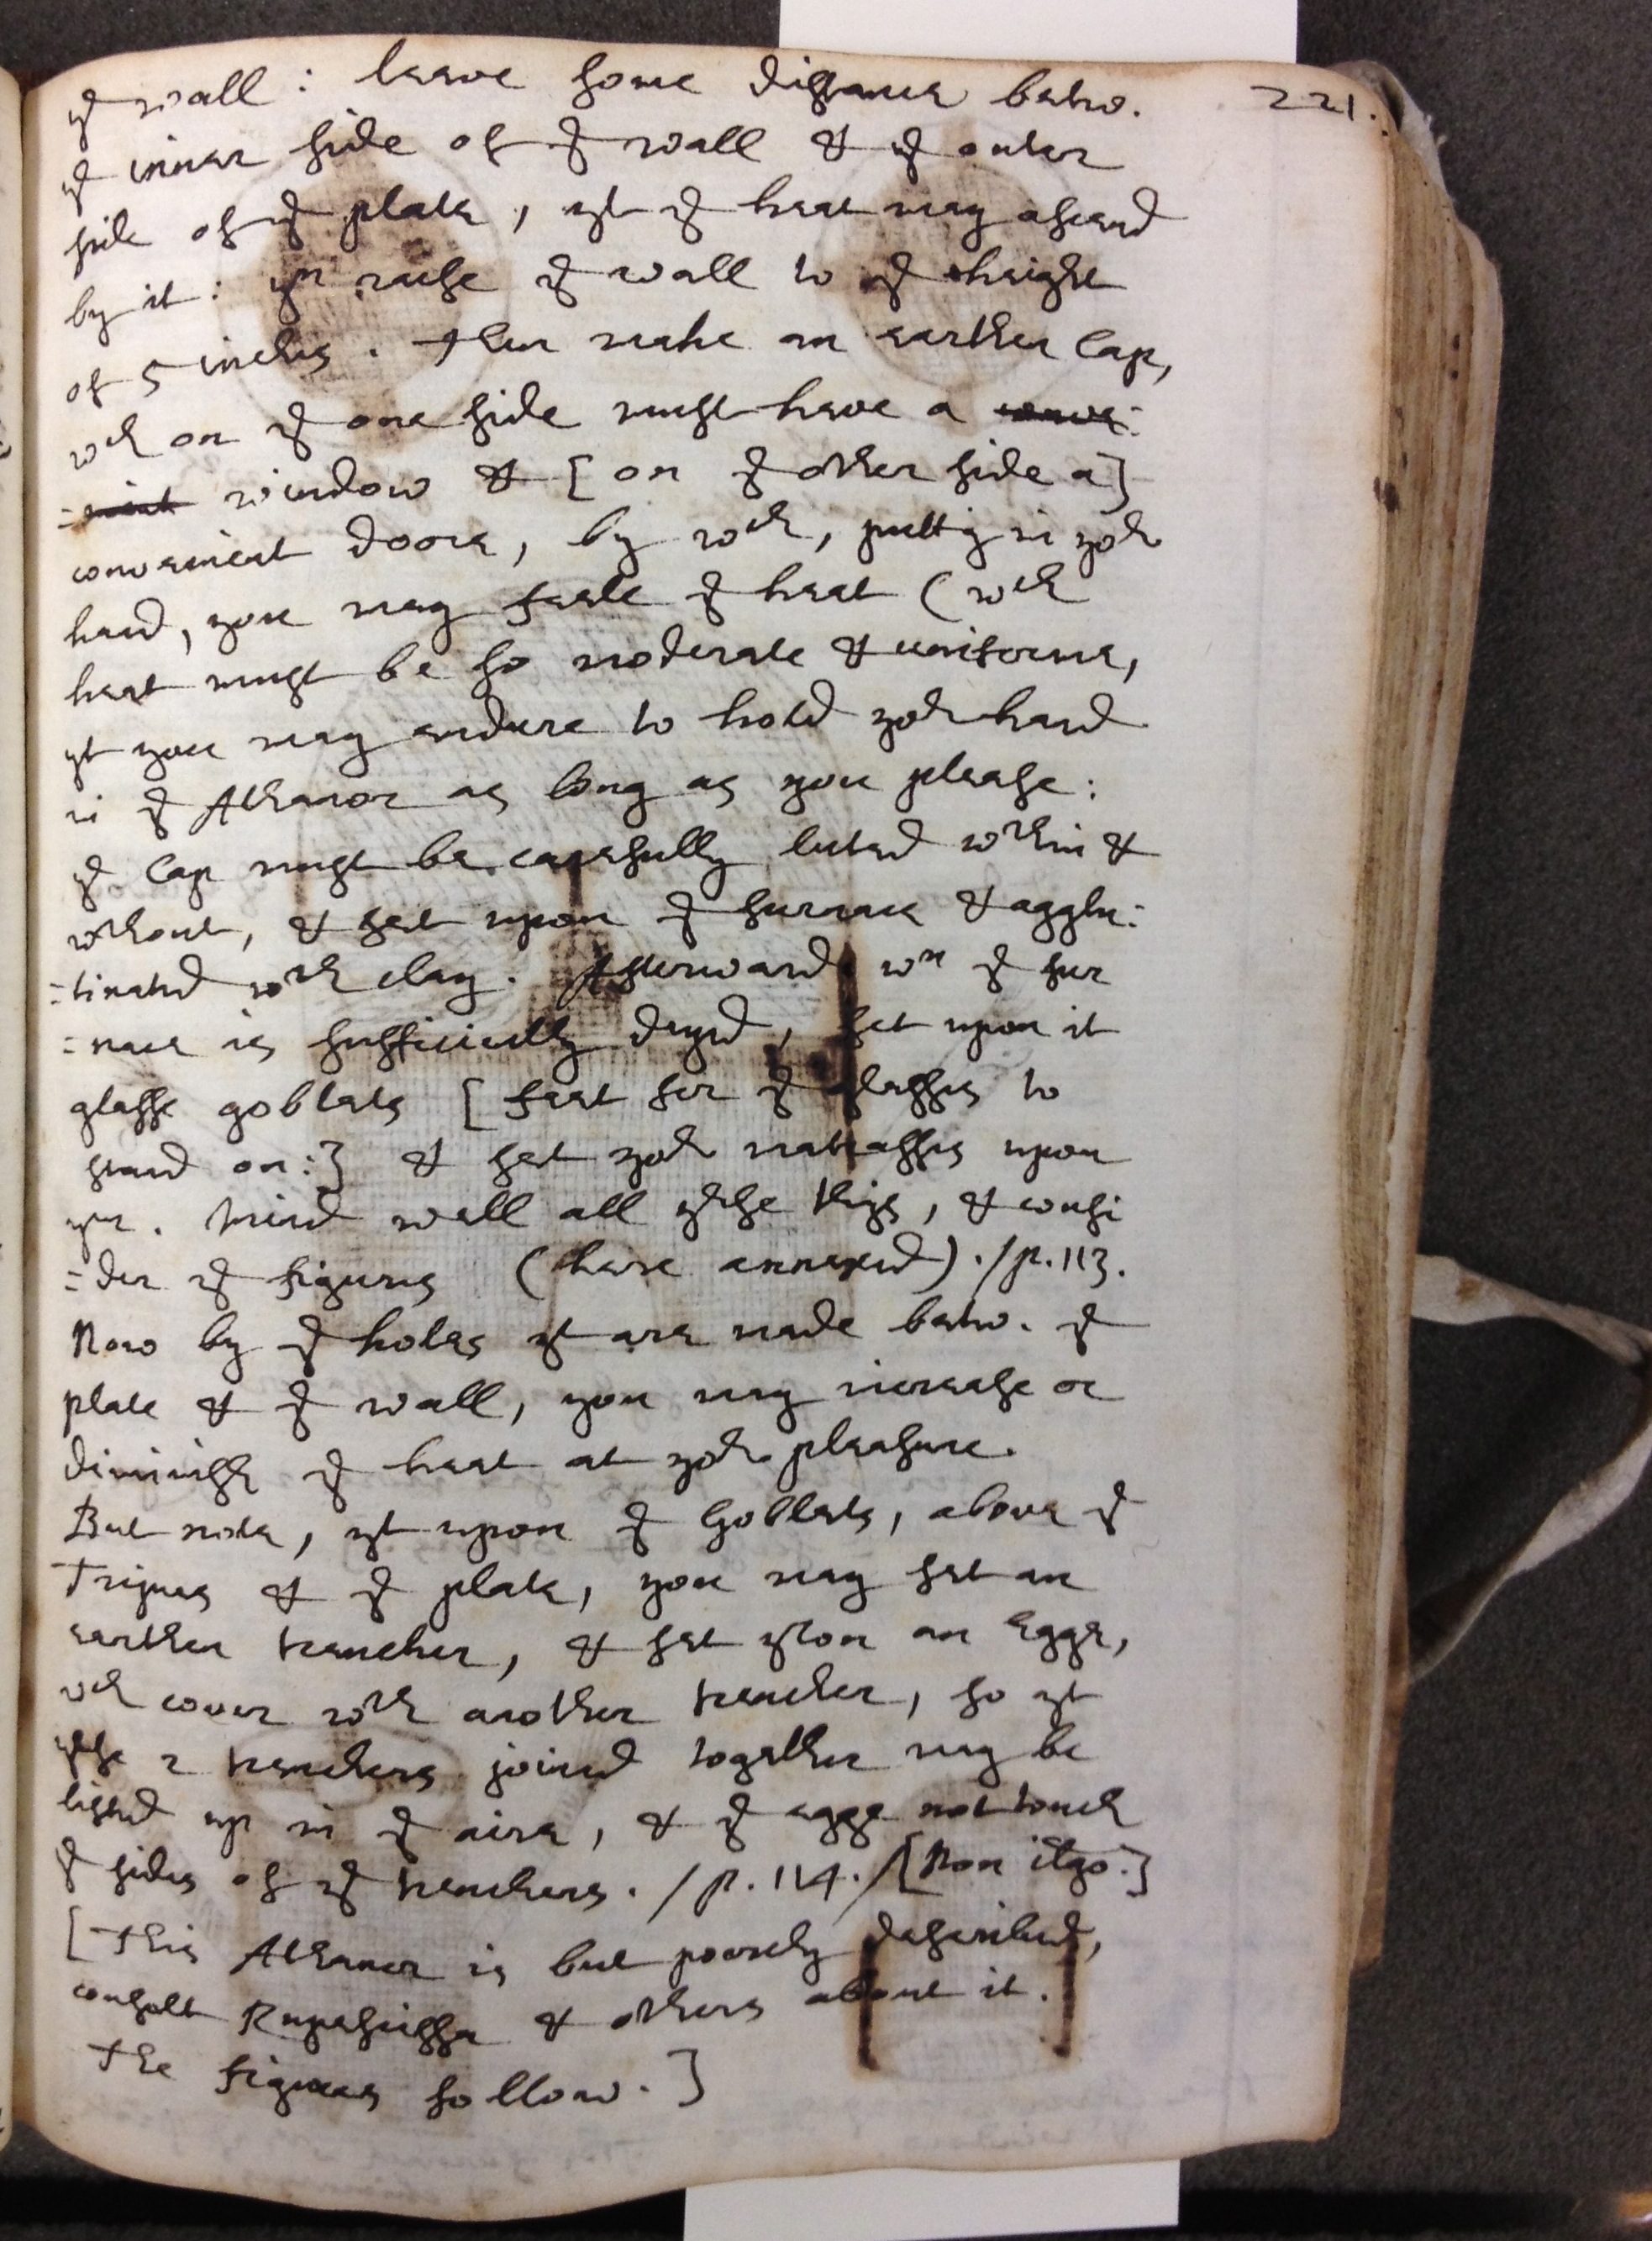 ye wall: leave some distance betw. 221.
ye inner side of ye wall & ye outer
side of ye plate, yt ye heat may ascend
by it: yn raise ye wall to ye height
of 5 inches. Then make an earthen Cap,
wch on ye one side must have a conve:
=nient window & [on ye other side a]
convenient doore, by wch, puttig in yor
hand, you may feele ye heat (wch
heat must be so moderate & uniforme,
yt you may endure to hold yor hand
in ye Athanor as long as you please:
ye Cap must be carefully luted wthin &
wthout, & set upon ye furnace & agglu:
=tinated wth clay. Afterwards wn ye fur
=nace is sufficiently dryed, set upon it
glasse goblets [feet for ye glasses to
stand on:] & set yor matrasses upon
ym. Mind well all these thigs, & consi
=der ye figures (here annexed). /p.113.
Now by ye holes yt are made betw. ye
plate & ye wall, you may increase or
diminish ye heat at yor pleasure.
But note, yt upon ye Goblets, above ye
Tripus & ye plate, you may set an
earthen trencher, & set yron an Egge,
wch cover wth another trencher, so yt
these 2 trenchers joined together may be
lifted up in ye aire, & ye egge not touch
ye sides of ye trenchers. /p.114./ [Non ego.]
[This Athanor is but poorely described,
consult Rupescissa & others about it.
The figures follow.]